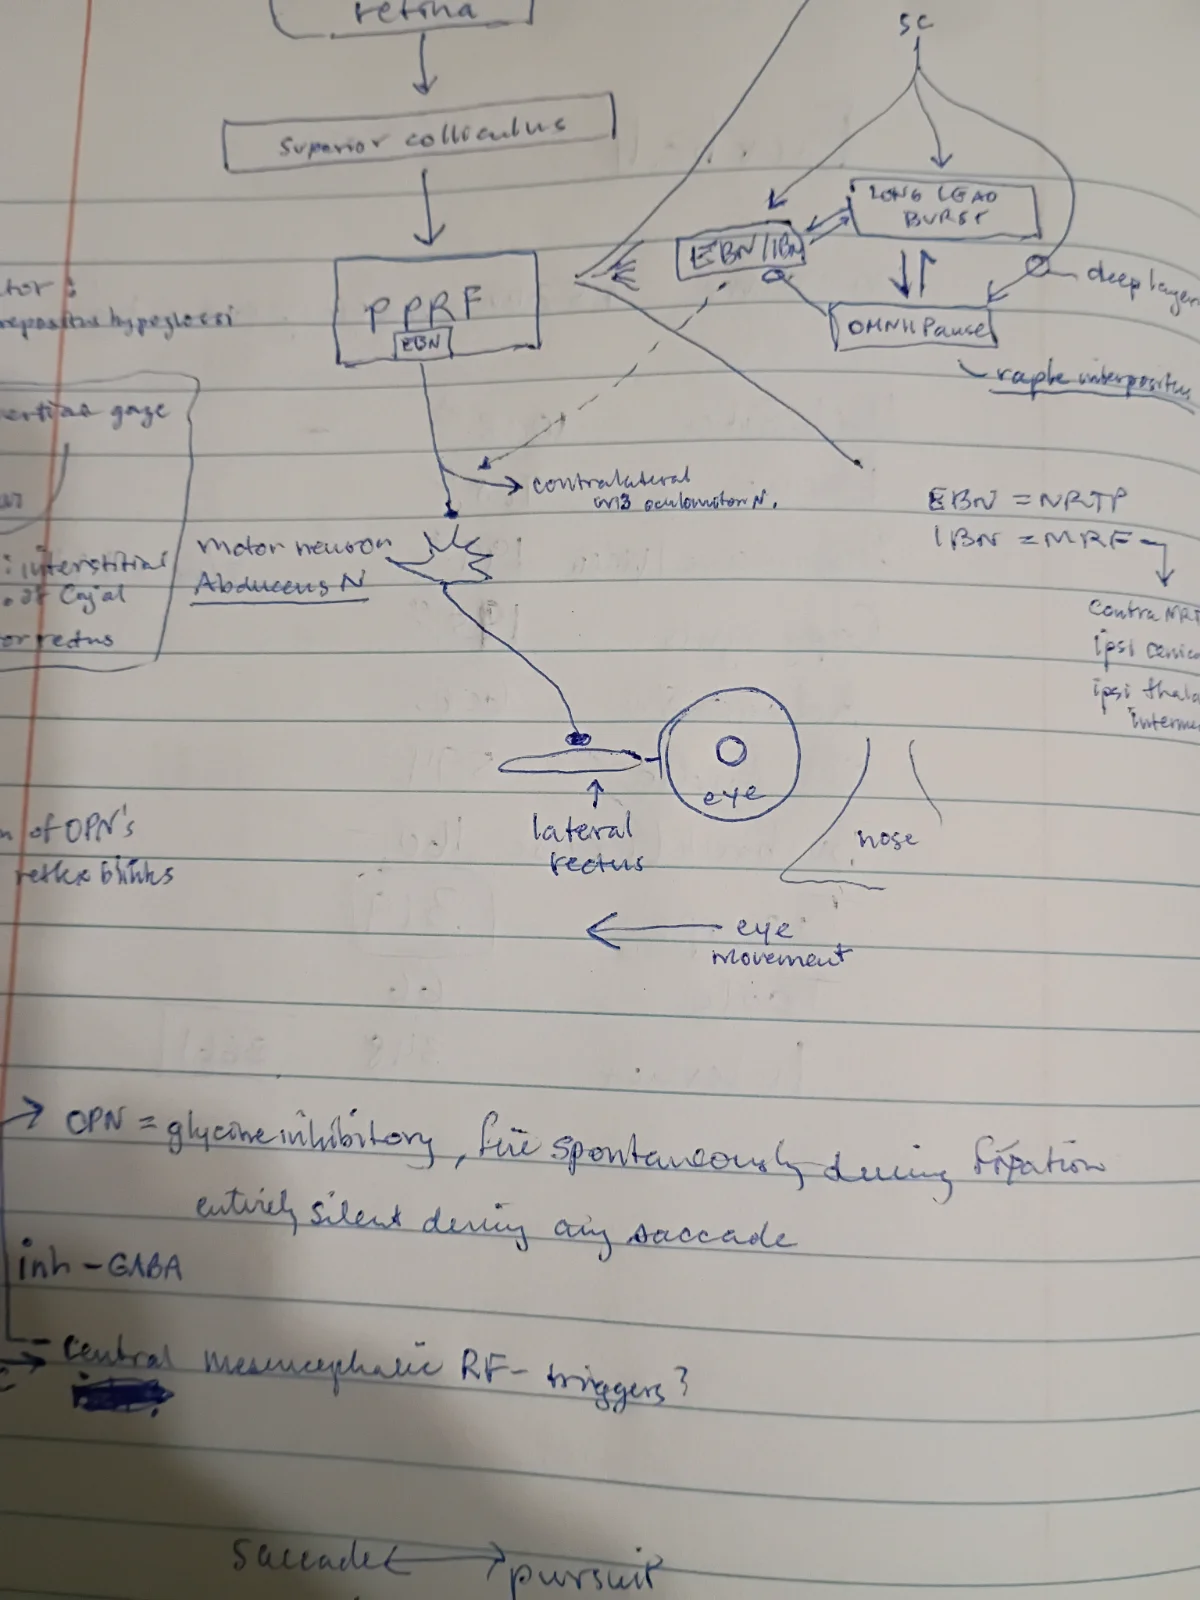 retina
SC
Superior colliculus
LONG LEAD
BURST
EBN/IBN
deep layer
tor :
repositus hypoglossi
PPRF
EBN
OMNI Pause
raphe interpositus
vertical gaze
contralateral
oculomotor N.
EBN = NRTP
IBN = MRF
: interstitial
. of Cajal
or rectus
motor neuron
Abducens N
Contra NRT
ipsi
ipsi thala
interme
eye
lateral
rectus
nose
n of OPN's
reflex blinks
eye
movement
OPN = glycine inhibitory, fire spontaneously during fixation
entirely silent during any saccade
inh - GABA
- Central mesencephalic RF - triggers?
Saccade pursuit